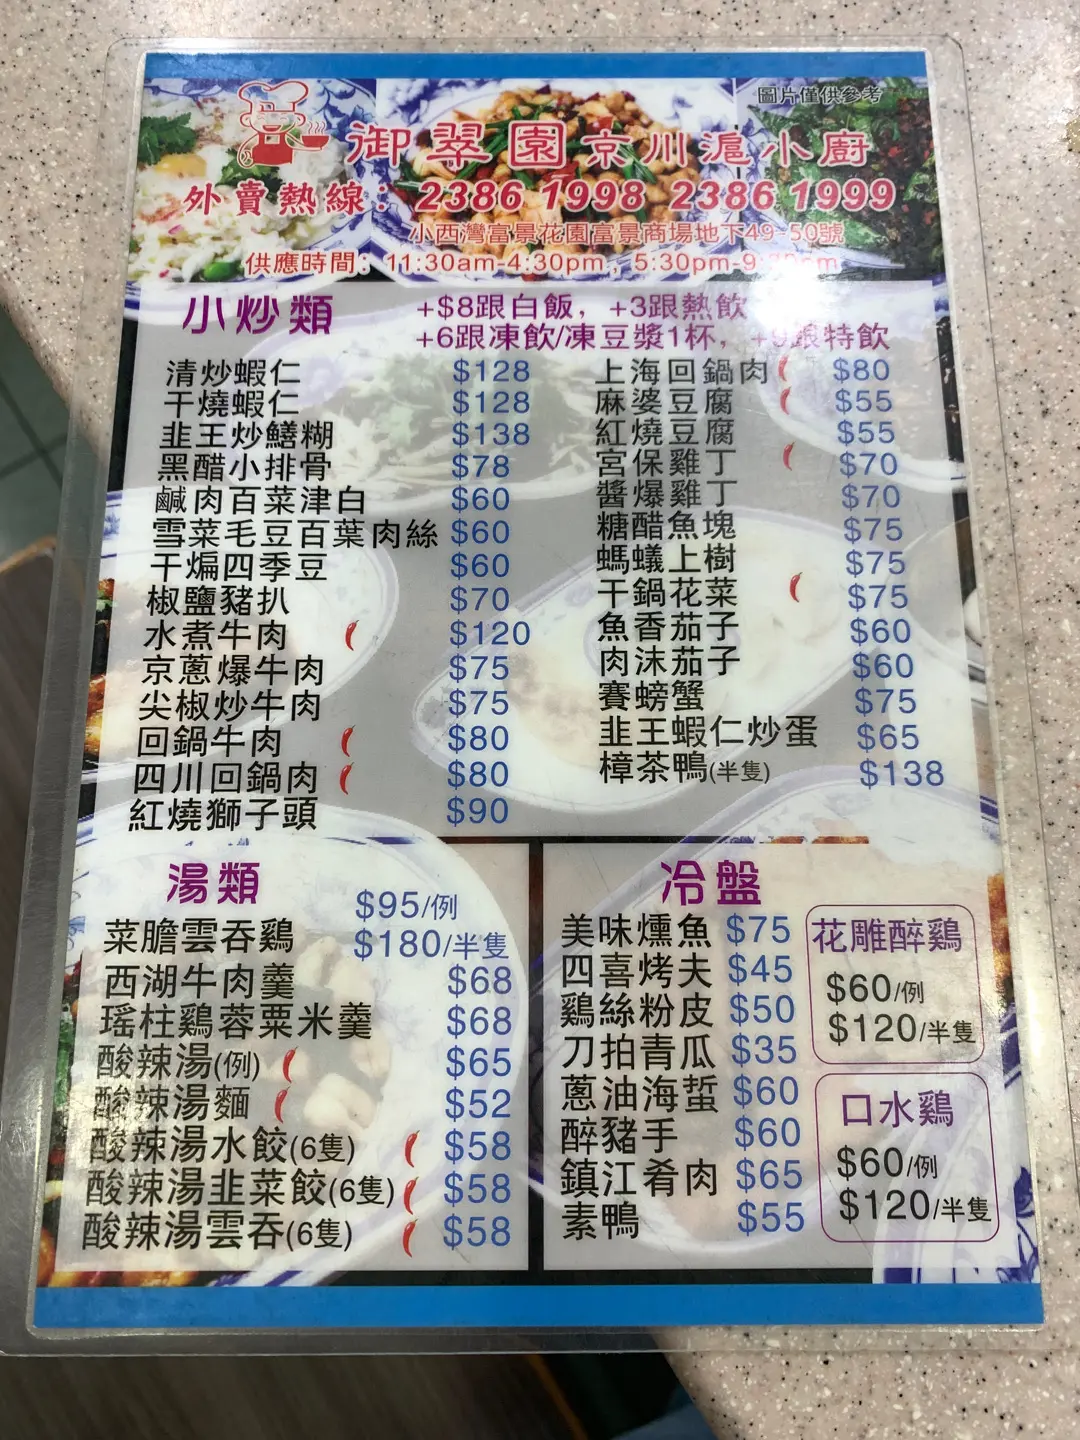 圖片僅供參考
御翠園京川滬小廚
外賣熱線：2386 1998 2386 1999
小西灣富景花園富景商場地下49-50號
供應時間：11:30am-4:30pm，5:30pm-9:
小炒類
+$8跟白飯，+3跟熱飲
+6跟凍飲/凍豆漿1杯，+9跟特飲
清炒蝦仁 $128
干燒蝦仁 $128
韭王炒鱔糊 $138
黑醋小排骨 $78
鹹肉百菜津白 $60
雪菜毛豆百葉肉絲 $60
干煸四季豆 $60
椒鹽豬扒 $70
水煮牛肉 $120
京蔥爆牛肉 $75
尖椒炒牛肉 $75
回鍋牛肉 $80
四川回鍋肉 $80
紅燒獅子頭 $90
上海回鍋肉 $80
麻婆豆腐 $55
紅燒豆腐 $55
宮保雞丁 $70
醬爆雞丁 $70
糖醋魚塊 $75
螞蟻上樹 $75
干鍋花菜 $75
魚香茄子 $60
肉沫茄子 $60
賽螃蟹 $75
韭王蝦仁炒蛋 $65
樟茶鴨(半隻) $138
湯類
菜膽雲吞鷄 $95/例
$180/半隻
西湖牛肉羹 $68
瑤柱鷄蓉粟米羹 $68
酸辣湯(例) $65
酸辣湯麵 $52
酸辣湯水餃(6隻) $58
酸辣湯韭菜餃(6隻) $58
酸辣湯雲吞(6隻) $58
冷盤
美味燻魚 $75
四喜烤夫 $45
鷄絲粉皮 $50
刀拍青瓜 $35
蔥油海蜇 $60
醉豬手 $60
鎮江肴肉 $65
素鴨 $55
花雕醉鷄
$60/例
$120/半隻
口水鷄
$60/例
$120/半隻